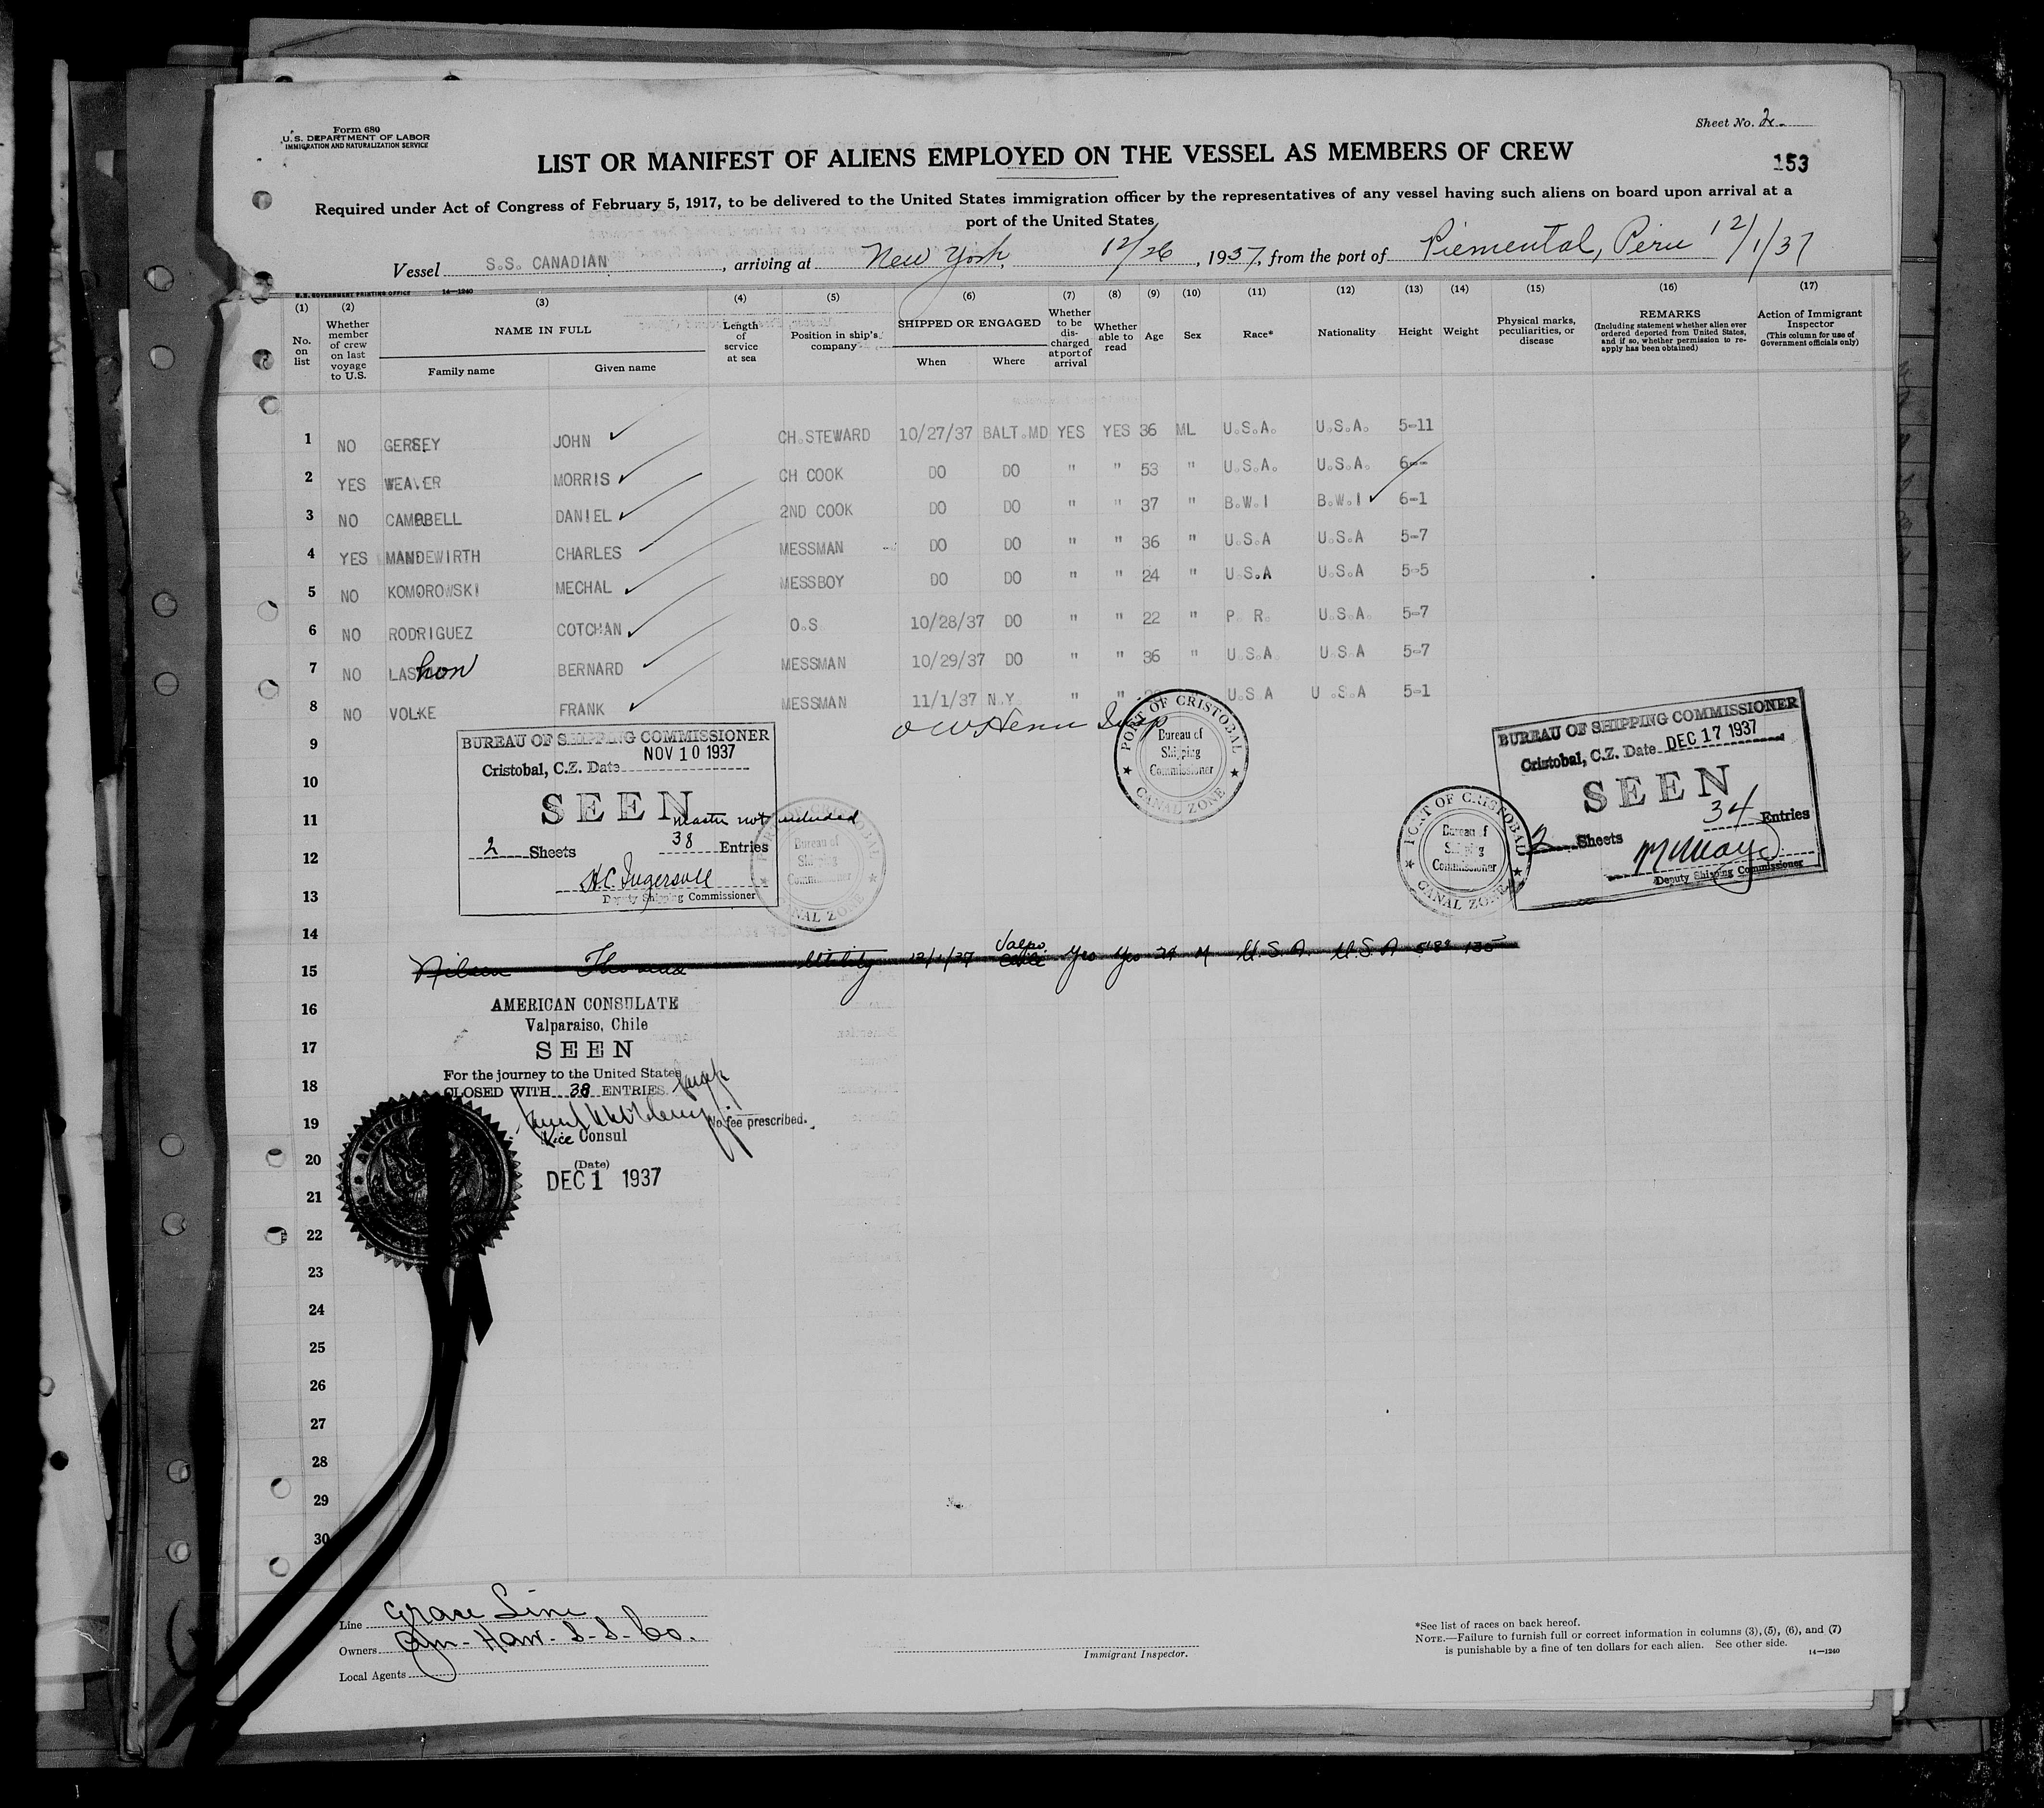 Form 680
U. S. DEPARTMENT OF LABOR
IMMIGRATION AND NATURALIZATION SERVICE
Sheet No. 2
LIST OR MANIFEST OF ALIENS EMPLOYED ON THE VESSEL AS MEMBERS OF CREW
153
Required under Act of Congress of February 5, 1917, to be delivered to the United States immigration officer by the representatives of any vessel having such aliens on board upon arrival at a
port of the United States
Vessel S.S. CANADIAN, arriving at New York, 12/26, 1937, from the port of Piemental, Peru 12/1/37
U.S. GOVERNMENT PRINTING OFFICE 14—1240
(1) (2) (3) (4) (5) (6) (7) (8) (9) (10) (11) (12) (13) (14) (15) (16) (17)
No. on list
Whether member of crew on last voyage to U.S.
NAME IN FULL
Family name
Given name
Length of service at sea
Position in ship's company
SHIPPED OR ENGAGED
When
Where
Whether to be discharged at port of arrival
Whether able to read
Age
Sex
Race*
Nationality
Height
Weight
Physical marks, peculiarities, or disease
REMARKS
(Including statement whether alien ever ordered deported from United States, and if so, whether permission to re-apply has been obtained)
Action of Immigrant Inspector
(This column for use of Government officials only)
1 NO GERSEY JOHN CH.STEWARD 10/27/37 BALT.MD YES YES 36 ML U.S.A. U.S.A. 5-11
2 YES WEAVER MORRIS CH COOK DO DO " " 53 " U.S.A. U.S.A. 6--
3 NO CAMPBELL DANIEL 2ND COOK DO DO " " 37 " B.W.I B.W.I 6-1
4 YES MANDEWIRTH CHARLES MESSMAN DO DO " " 36 " U.S.A U.S.A 5-7
5 NO KOMOROWSKI MECHAL MESSBOY DO DO " " 24 " U.S.A U.S.A 5-5
6 NO RODRIGUEZ COTCHAN O.S 10/28/37 DO " " 22 " P. R. U.S.A. 5-7
7 NO LAShon BERNARD MESSMAN 10/29/37 DO " " 36 " U.S.A U.S.A 5-7
8 NO VOLKE FRANK MESSMAN 11/1/37 N.Y. " " U.S.A U.S.A 5-1
9
10
11
12
13
14
BUREAU OF SHIPPING COMMISSIONER
Cristobal, C.Z. Date NOV 10 1937
SEEN
master not included
2 Sheets 38 Entries
H.C. Ingersoll
Deputy Shipping Commissioner
PORT OF CRISTOBAL
Bureau of
Shipping
Commissioner
CANAL ZONE
PORT OF CRISTOBAL
Bureau of
Shipping
Commissioner
CANAL ZONE
PORT OF CRISTOBAL
Bureau of
Shipping
Commissioner
CANAL ZONE
BUREAU OF SHIPPING COMMISSIONER
Cristobal, C.Z. Date DEC 17 1937
SEEN
2 Sheets 34 Entries
Deputy Shipping Commissioner
15 Nilsen Thomas Utility 12/1/37 Valpo. Chile Yes Yes 24 M U.S.A. U.S.A 135
16
17
18
19
20
21
22
23
24
25
26
27
28
29
30
AMERICAN CONSULATE
Valparaiso, Chile
SEEN
For the journey to the United States
CLOSED WITH 38 ENTRIES
No fee prescribed.
Vice Consul
(Date)
DEC 1 1937
Line Grace Line
Owners Am-Haw. S.S. Co.
Local Agents
Immigrant Inspector.
*See list of races on back hereof.
NOTE.—Failure to furnish full or correct information in columns (3), (5), (6), and (7)
is punishable by a fine of ten dollars for each alien. See other side.
14—1240